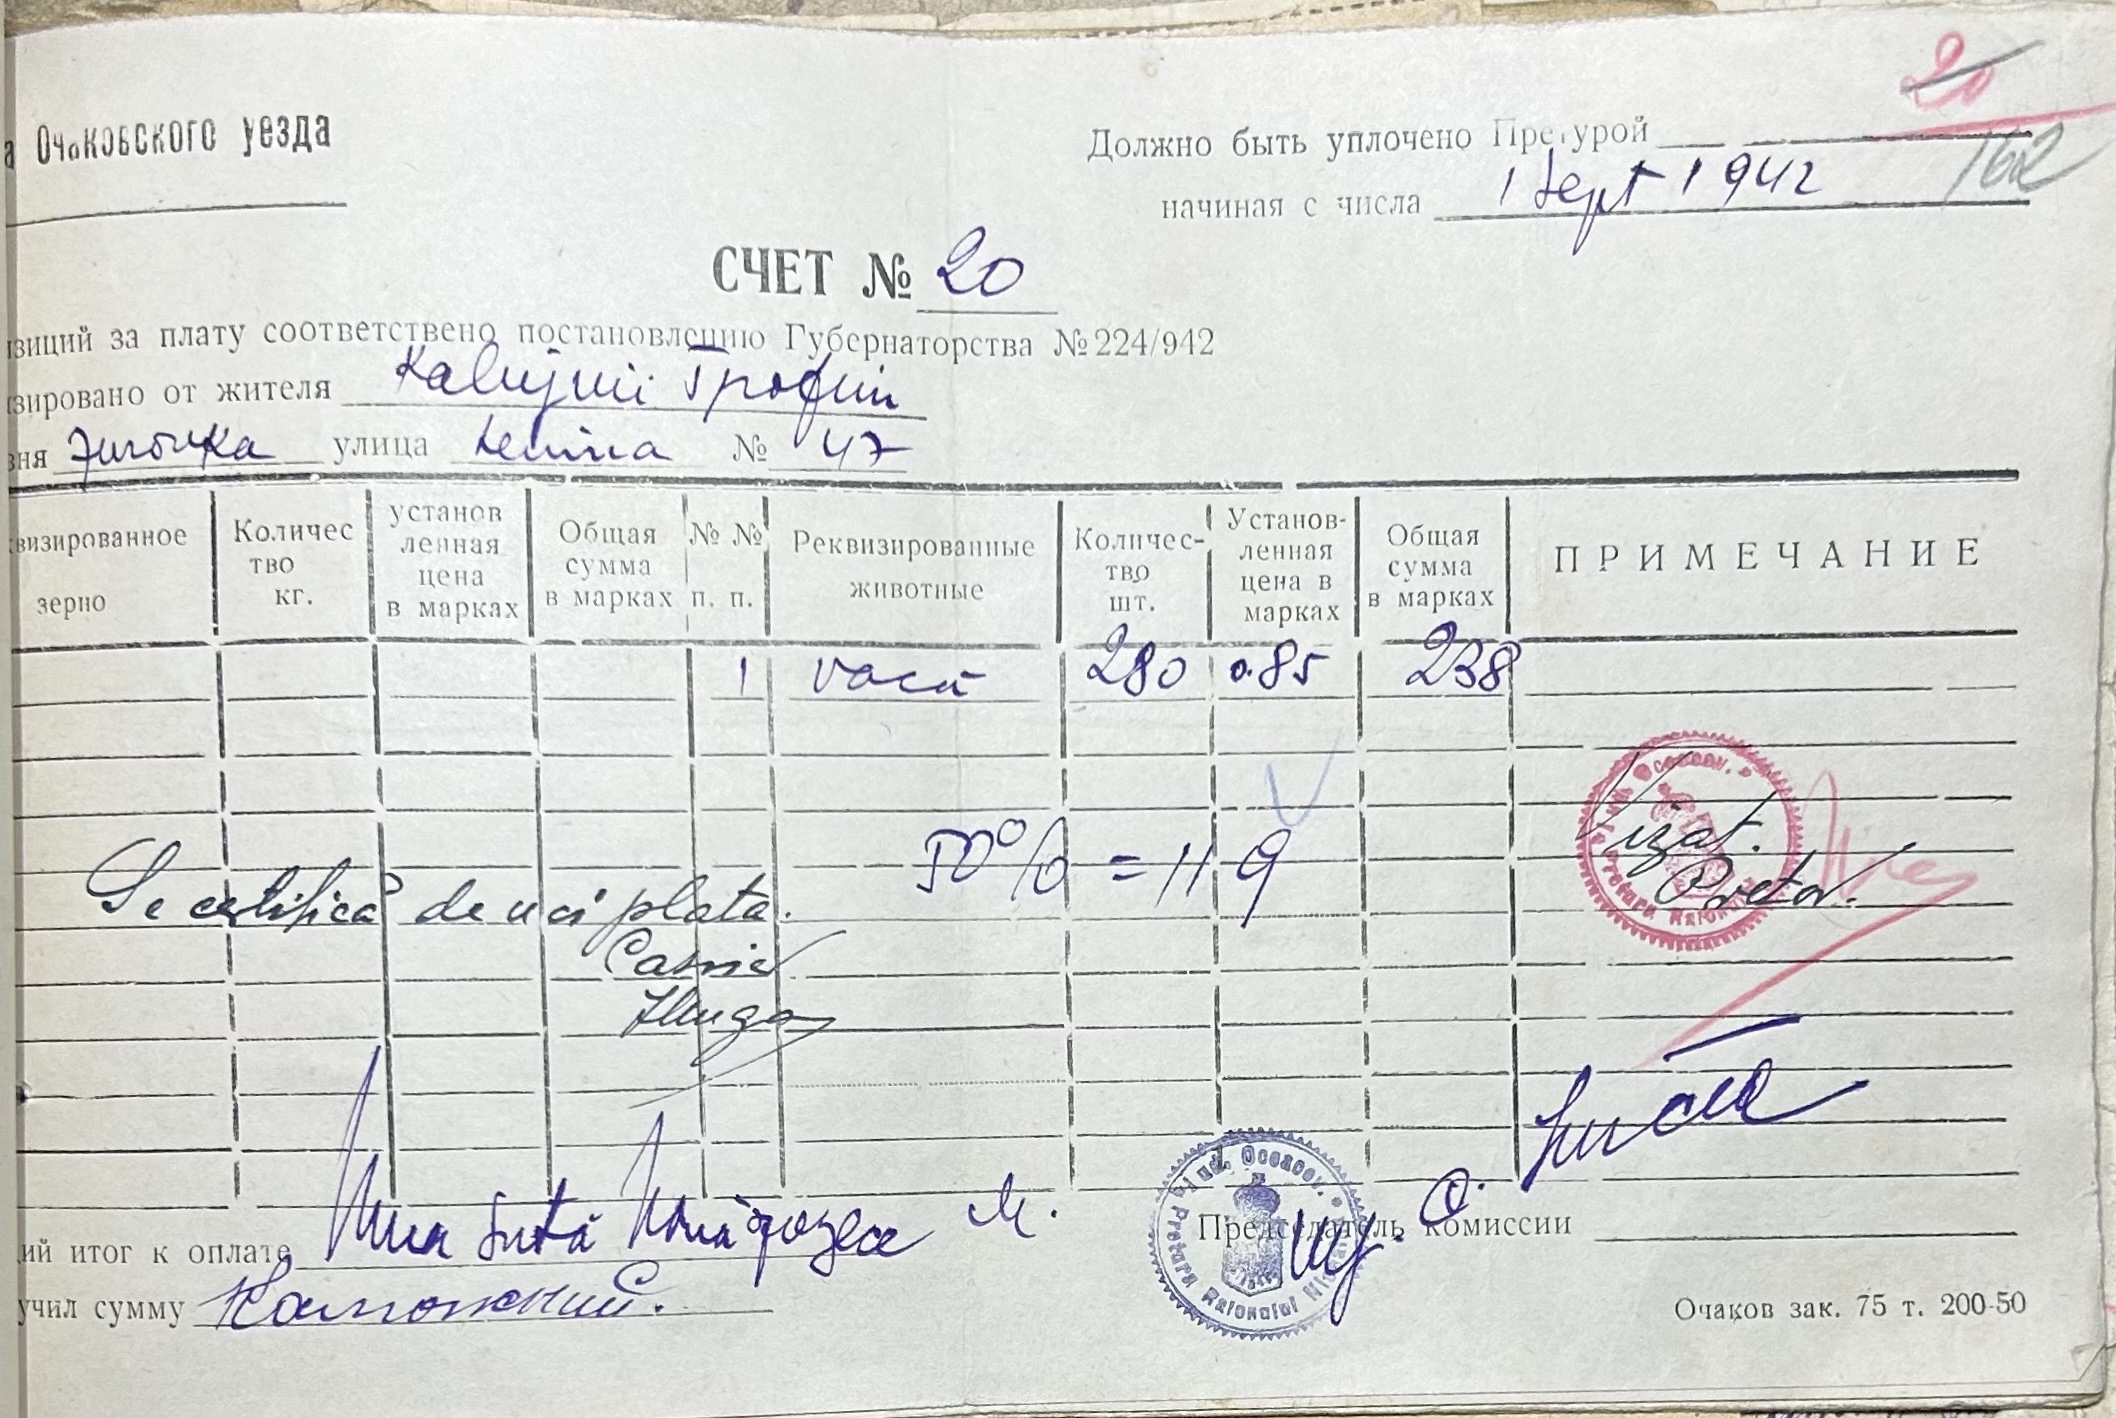 20
а Очаковского уезда
Должно быть уплочено Претурой
162
начиная с числа 1 Sept 1942
СЧЕТ № 20
изиций за плату соответствено постановлению Губернаторства № 224/942
изировано от жителя Kalujnii Трофим
вня улица Lenina № 47
квизированное зерно
Количество кг.
установленная цена в марках
Общая сумма в марках
№ № п. п.
Реквизированные животные
Количество шт.
Установленная цена в марках
Общая сумма в марках
ПРИМЕЧАНИЕ
1 vacă 280 0.85 238
Jud. Oceacov.
Pretura Raionului
50% = 119
Vizat.
Pretor.
Se certifică de noi plata.
Casier
Jud. Oceacov.
Pretura Raionului
ий итог к оплате una sută nouăsprezece M.
Председатель Комиссии
учил сумму Калюжний.
Очаков зак. 75 т. 200-50